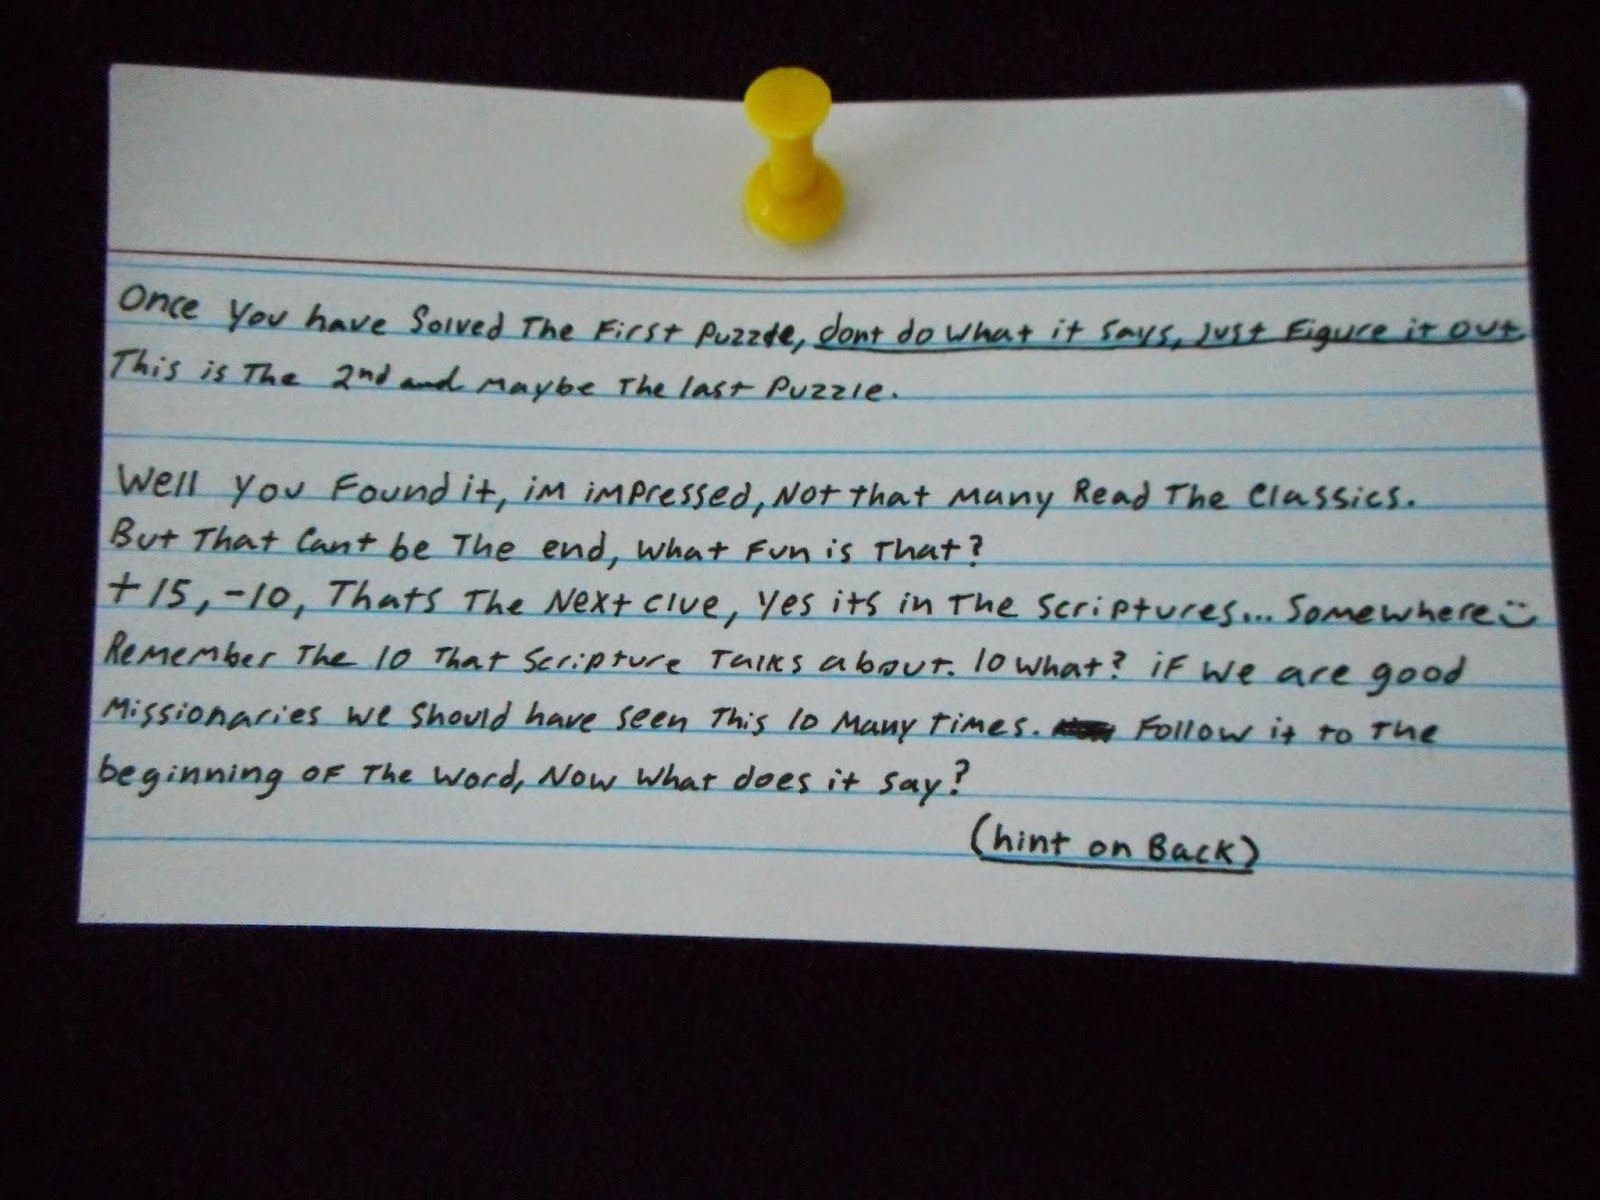 Once You have Solved The First Puzzle, dont do what it says, just Figure it out
This is The 2nd and Maybe The last Puzzle.
Well You Found it, im impressed, Not that Many Read The Classics.
But That Cant be The end, What Fun is That?
+15, -10, Thats The Next Clue, Yes its in The Scriptures... Somewhere
Remember The 10 That Scripture Talks about. 10 What? if We are good
Missionaries we Should have seen This 10 Many Times. Follow it to The
beginning of The Word, Now What does it say?
(hint on Back)